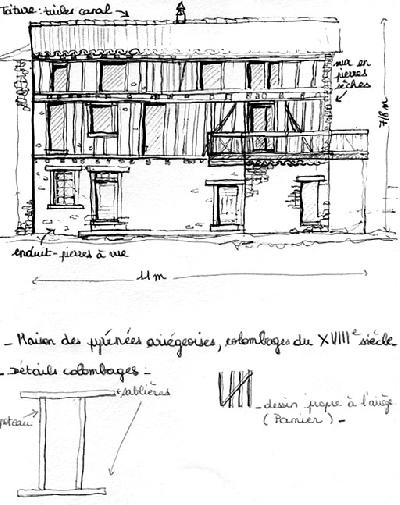 Toiture: tuiles canal
mur en
pierres
sèches
7/8 m
enduit - pierres à vue
11 m
_ Maison des pyrénées ariégeoises, colombages du XVIIIe siècle
_ Détails colombages _
sablières
poteau
_ dessin propre à l'ariège
(Pamier) _